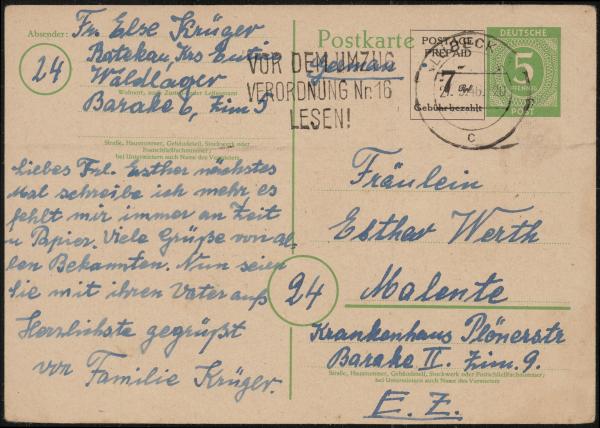 Absender:
Fr. Else Krüger
Ratekau, Krs Eutin
Waldlager
Barake 6, Zim 5
24
Wohnort, auch Zustell- oder Leitpostamt
Straße, Hausnummer, Gebäudeteil, Stockwerk oder
Postschließfachnummer;
bei Untermietern auch Name des Vermieters
Liebes Frl. Esther nächstes
Mal schreibe ich mehr es
fehlt mir immer an Zeit
u Papier. Viele Grüße von al-
len Bekannten. Nun seien
Sie mit ihren Vater aufs
Herzlichste gegrüßt
von Familie Krüger.
Postkarte
VOR DEM UMZUG
VERORDNUNG Nr. 16
LESEN!
POSTAGE
PREPAID
7
Gebühr bezahlt
LÜBECK
C
DEUTSCHE
5
PFENNIG
POST
Fräulein
Esther Werth
24
Malente
Krankenhaus Plönerstr
Barake II. Zim. 9.
Straße, Hausnummer, Gebäudeteil, Stockwerk oder Postschließfachnummer;
bei Untermietern auch Name des Vermieters
E. Z.